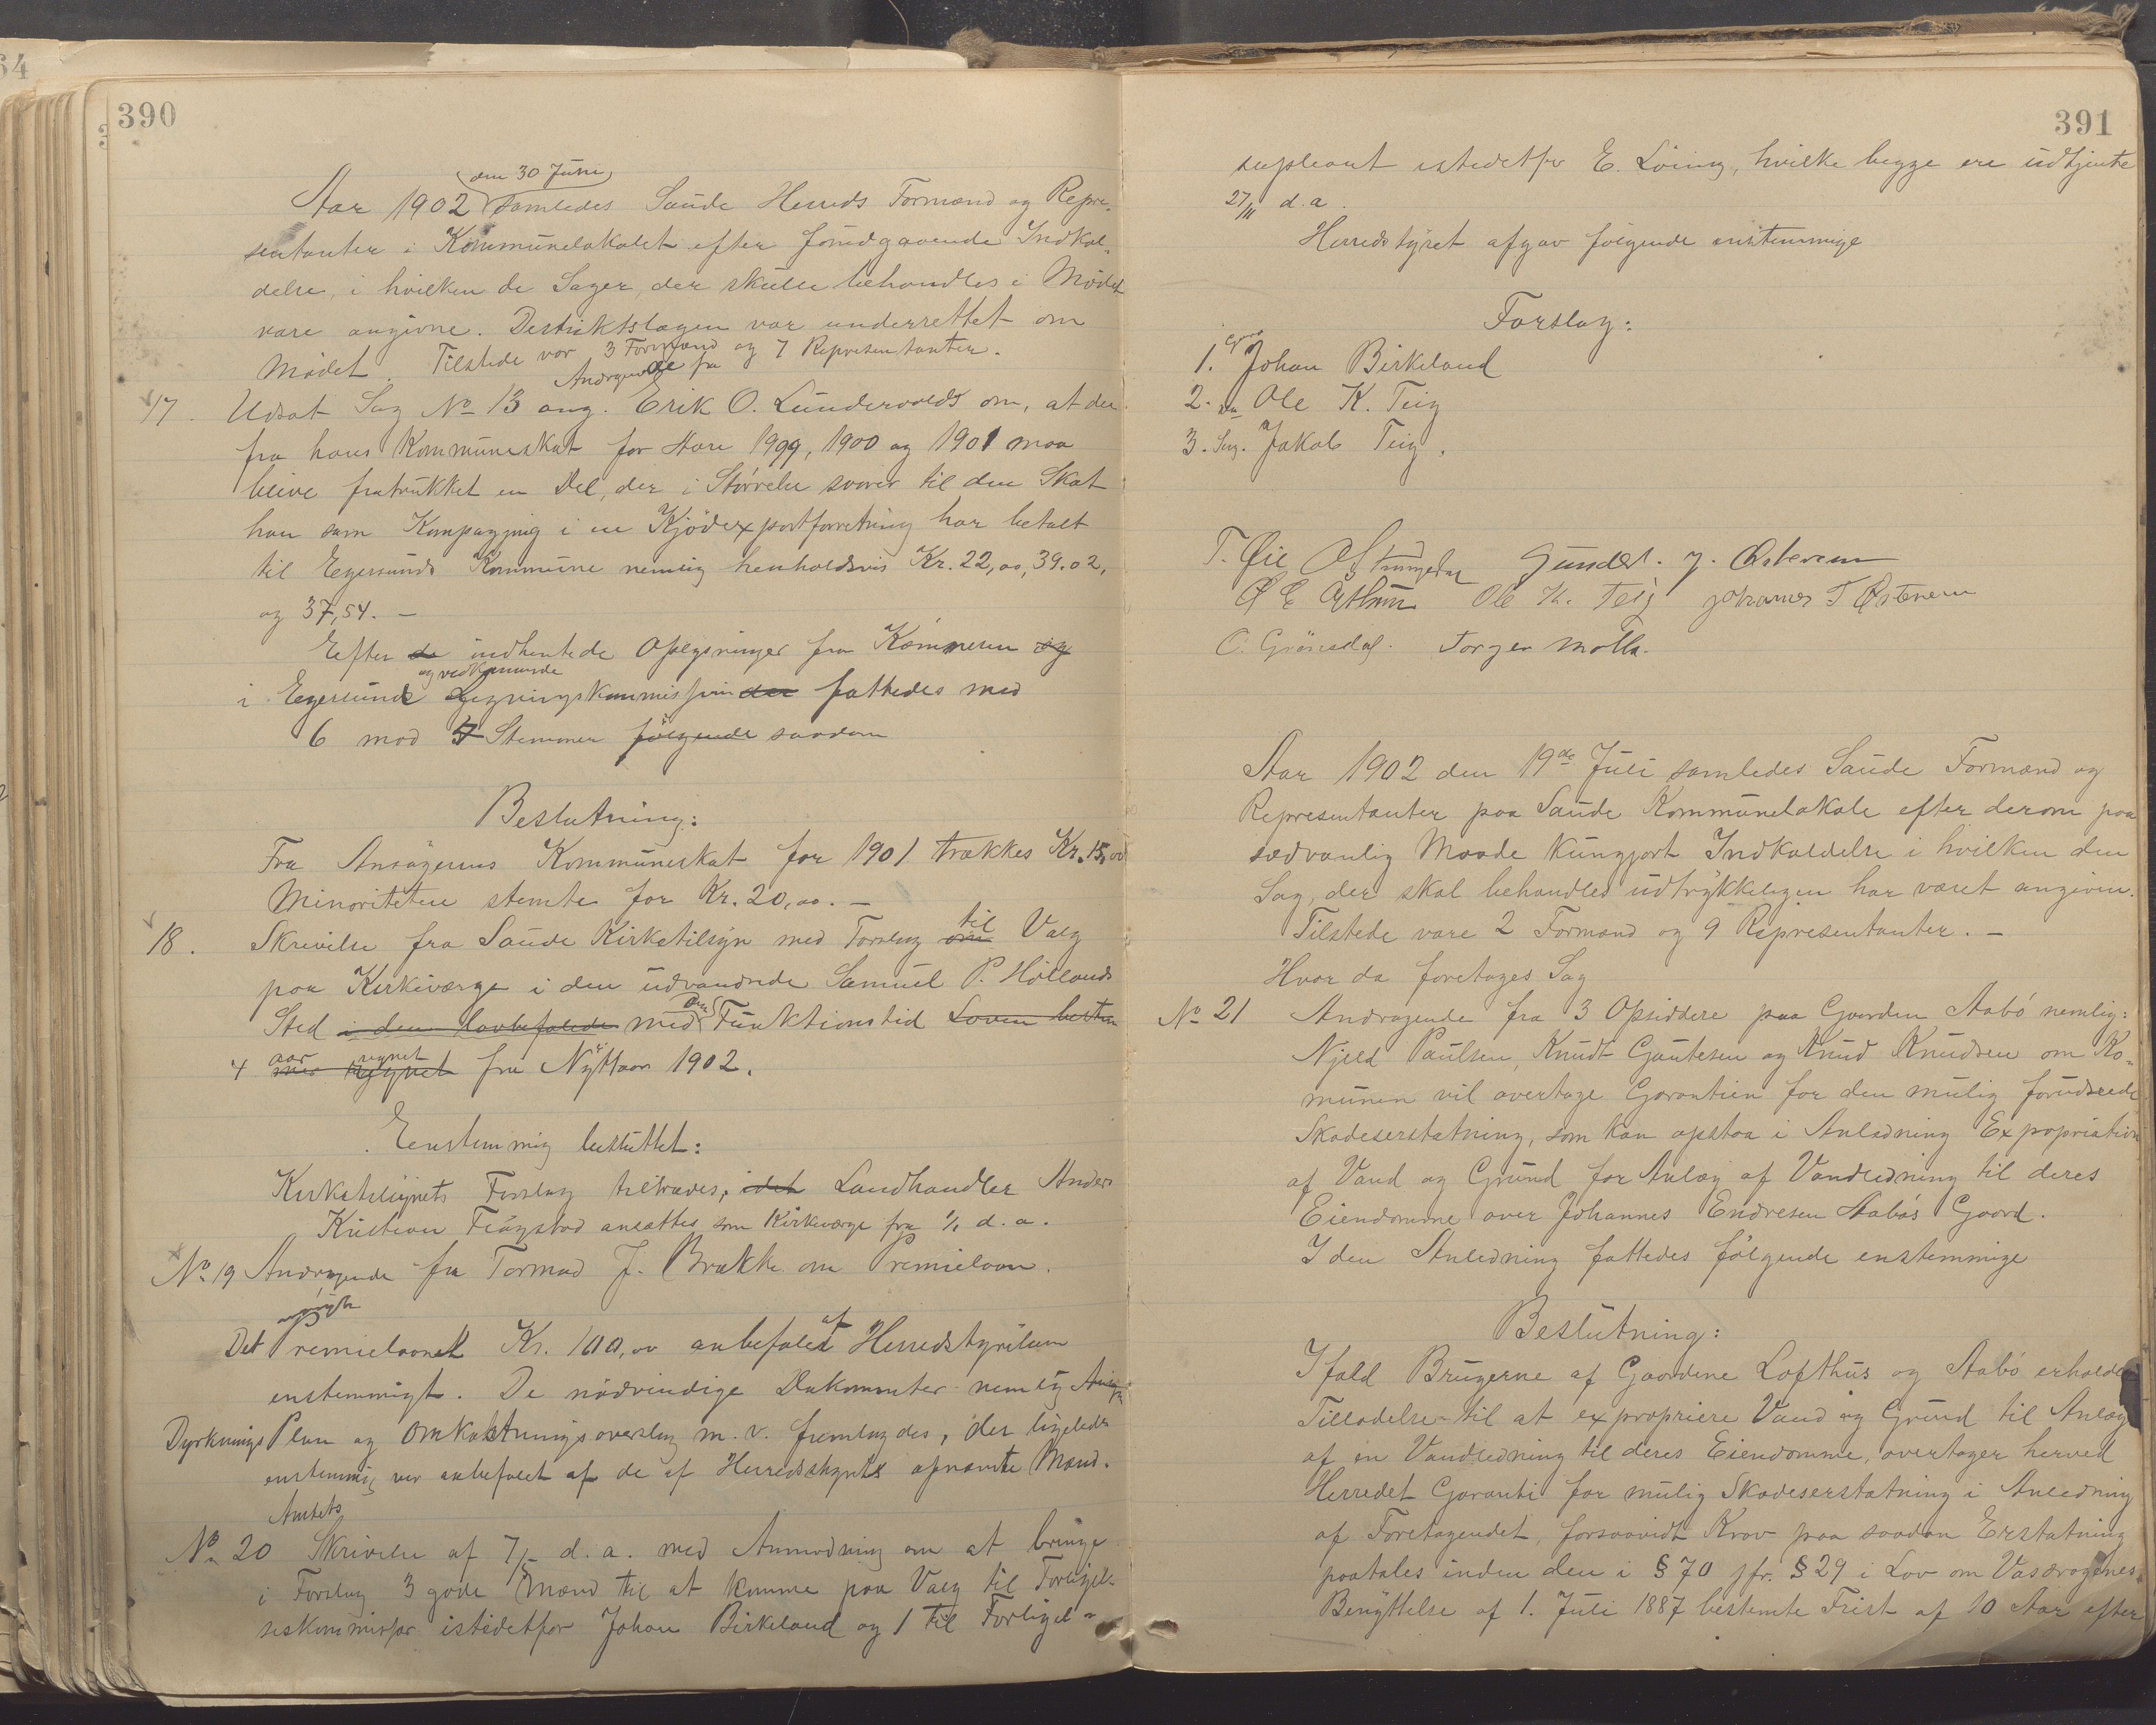 390
den 30 Juni
Aar 1902 samledes Saude Herreds Formænd og Repre-
sentanter i Kommunelokalet efter forudgaaende Indkal-
delse, i hvilken de Sager, der skulle behandles i Mødet
vare angivne. Destriktslægen var underrettet om
Mødet. Tilstede var 3 Formænd og 7 Representanter.
Andragende fra
17. Udsat Sag No 13 ang. Erik O. Lundervolds om, at der
fra hans Kommuneskat for Aare 1999, 1900 og 1901 maa
blive fratrukket en Del, der i Størrelse svarer til den Skat
han som Kompagnig i en Kjødexportforretning har betalt
til Egersunds Kommune nemlig henholdsvis Kr. 22,00, 39.02,
og 37,54. —
Efter de indhentede Oplysninger fra Kæmneren og
og vedkommende
i Egersunds Ligningskommission der fattedes med
6 mod 4 Stemmer følgende saadan
Beslutning:
Fra Ansøgerens Kommuneskat for 1901 trækkes Kr. 15,00
Minoriteten stemte for Kr. 20,00. —
18. Skrivelse fra Saude Kirketilsyn med Forslag om til Valg
paa Kirkeværge i den udvandrede Samuel P. Høllands
Sted i den lovbefalede med Funktionstid Loven bestem
aar regnet
4 regnet fra Nyttaar 1902.
Eenstemmig besluttet:
Kirketilsynets Forslag tiltrædes, idet Landhandler Anders
Kristian Flaugstad ansættes som Kirkeværge fra 1/1 d.a.
No 19 Andragende fra Tormod J. Brække om Premielaan.
Det Premielaanet Kr. 100,00 anbefales af Herredstyrelsen
enstemmigt. De nødvendige Dokumenter nemlig
Dyrknings Plan og Omkostningsoverslag m.v. fremlagdes, der ligeledes
enstemmig var anbefalet af de af Herredsstyret opnævnte Mænd.
Amtets
No 20 Skrivelse af 7/ d.a. med Anmodning om at bringe
i Forslag 3 gode Mænd til at komme paa Valg til Forligel-
seskommissær istedetfor Johan Birkeland og 1 til Forligel-
391
supleant istedetfor E. Løining, hvilke begge ere udtjente
27/11 d.a.
Herredstyret afgav følgende enstemmige
Forslag:
1. Johan Birkeland
2. Ole K. Teig
3. Jakob Teig.
T. Øie Gunder J. Østerem
Ole K. Teig Johannes T Østerem
O. Grønsdal. Torger Motla.
Aar 1902 den 19de Juli samledes Saude Formænd og
Representanter paa Saude Kommunelokale efter derom paa
sædvanlig Maade kungjort Indkaldelse i hvilken den
Sag, der skal behandles udtrykkeligen har været angiven.
Tilstede vare 2 Formænd og 9 Representanter. —
Hvor da foretages Sag
No 21 Andragende fra 3 Opsiddere paa Gaarden Aabø nemlig:
Njeld Paulsen, Knudt Gautesen og Knud Knudsen om Ko-
munen vil overtage Garantien for den mulig forudseede
Skadeserstatning, som kan opstaa i Anledning Expropriation
af Vand og Grund for Anlæg af Vandledning til deres
Eiendomme over Johannes Endresen Aabøs Gaard.
I den Anledning fattedes følgende enstemmige
Beslutning:
Ifald Brugerne af Gaardene Lofthus og Aabø erholder
Tilladelse til at expropriere Vand og Grund til Anlæg
af en Vandledning til deres Eiendomme, overtager herved
Herredet Garanti for mulig Skadeserstatning i Anledning
af Foretagendet, forsaavidt Krav paa saadan Erstatning
paatales inden den i § 70 jfr. § 29 i Lov om Vasdragenes
Benyttelse af 1. Juli 1887 bestemte Frist af 10 Aar efter